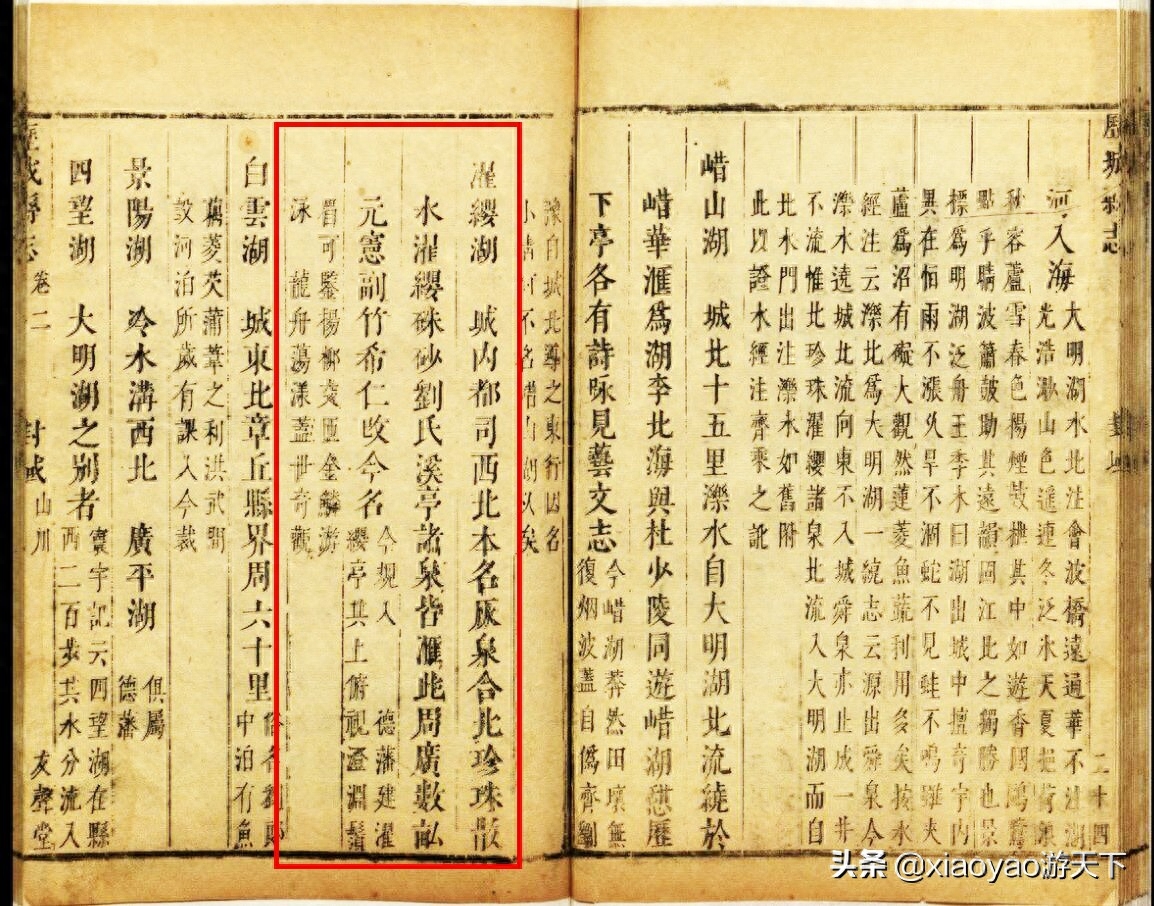 歷城縣志
二十四
河入海
大明湖水北注會波橋遠通華不注湖
光浩渺山色遙連冬泛冰天夏挹荷浪
秋容蘆雪春色楊煙鼓枻其中如遊香國鴻鷺
點乎晴波簫鼓助其遠韻固江北之獨勝也景
標爲明湖泛舟王季木曰湖出城中擅奇宇內
異在恒雨不漲久旱不涸蛇不見蛙不鳴雖夾
蘆爲沼有礙大觀然蓮菱魚蔬利用多矣按水
經注云濼北爲大明湖一統志云源出舜泉今
濼水遶城北流向東不入城舜泉亦止成一井
不流惟北珍珠濯纓諸泉北流入大明湖而自
北水門出注濼水如舊附
此以證水經注齊乘之訛
㟙山湖 城北十五里濼水自大明湖北流繞於
㟙華滙爲湖李北海與杜少陵同遊㟙湖憇歷
下亭各有詩咏見藝文志
今㟙湖莽然田壤無
復烟波蓋自僞齊劉
豫自城北導之東行因名
小清河不名㟙山湖久矣
濯纓湖 城内都司西北本名灰泉合北珍珠散
水濯纓硃砂劉氏溪亭諸泉皆滙此周廣數畝
元憲副竹希仁改今名
今規入德藩建濯
纓亭其上俯視澄淵鬚
眉可鑒楊柳交匝金鱗游
泳龍舟蕩漾蓋世奇觀
白雲湖 城東北章丘縣界周六十里
俗名劉郎
中泊有魚
藕菱芡蒲葦之利洪武間
設河泊所歲有課入今裁
景陽湖 冷水溝西北 廣平湖
俱屬
德藩
四望湖 大明湖之别者
寰宇記云四望湖在縣
西二百步其水分流入
歷城縣志 卷二 封域 山川 友聲堂
头条 @xiaoyao游天下